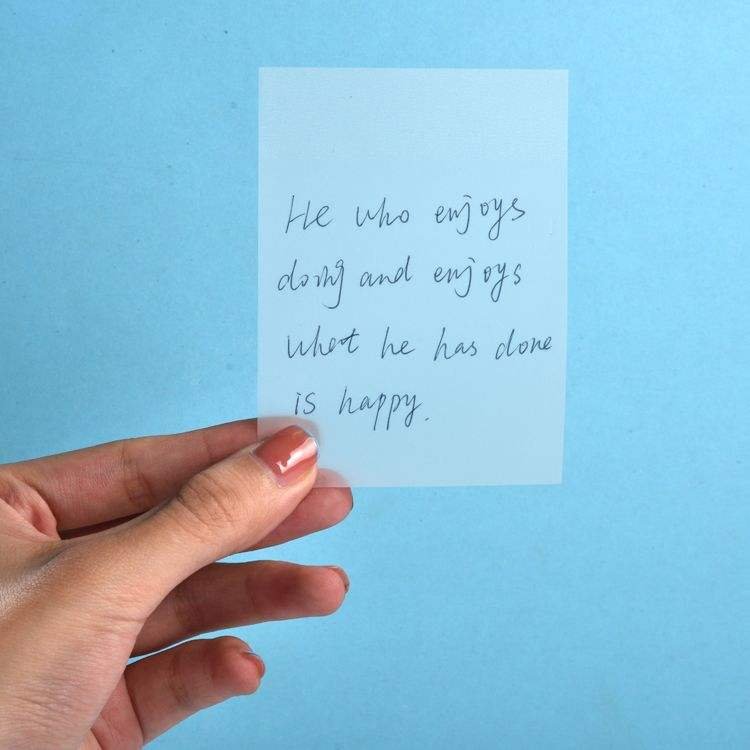 He who enjoys
doing and enjoys
what he has done
is happy.